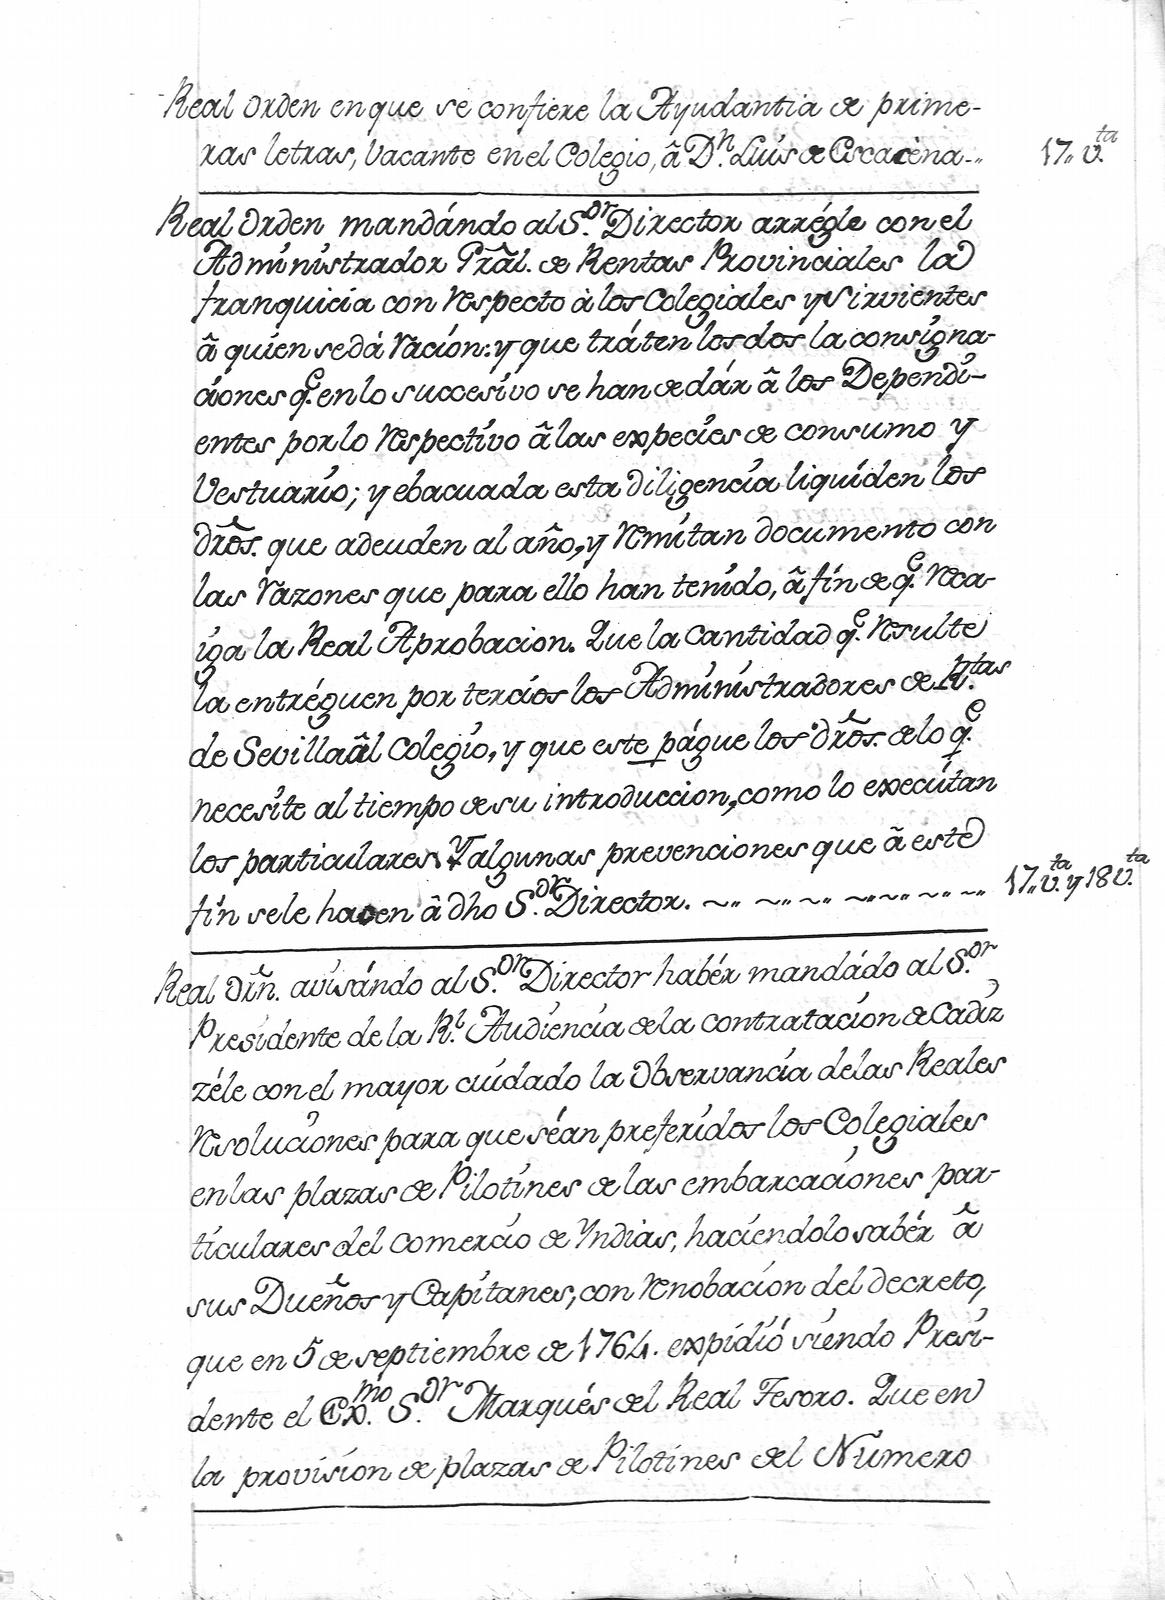 Real Orden enque se confiere la Ayudantia de prime-
ras letras, Vacante en el Colegio, â Dn. Luis de Escacena-.. 17,, v.ta
Real Orden mandándo al S.or Director arrégle con el
Administrador Prâl. de Rentas Provinciales la
franquicia con respecto à los Colegiales y Sirvientes
â quien se dà Racion: y que tráten los dos la consigna-
ciones q.e en lo succesivo se han de dár â los Dependi-
entes por lo respectivo â las expecies de consumo y
Vestuario; y ebacuada esta diligencia liquíden los
drôs. que adeuden al año, y remítan documento con
las razones que para ello han tenido, â fín de q.e reca-
iga la Real Aprobacion. Que la cantidad q.e resulte
la entréguen por tercios los Administradores de R.tas
de Sevilla âl Colegio, y que este págue los drôs. de lo q.e
necesite al tiempo de su introduccion, como lo execútan
los particulares. Y algunas prevenciones que â este
fín se le hacen â dho S.or Director. ~.. ~.. ~.. ~.. ~.. ~.. 17,, v.ta y 18 v.ta
Real Orn. avisándo al S.or Director habér mandádo al S.or
Presidente de la R.l Audiencia de la contratacion de Cadíz
zéle con el mayor cuidado la Observancia de las Reales
resoluciones para que séan preferidos los Colegiales
en las plazas de Pilotínes de las embarcaciones par-
ticulares del comercio de Yndias, haciendolo sabér â
sus Dueños y Capitanes, con renobacion del decreto,
que en 5 de septiembre de 1764. expidió siendo Presi-
dente el Ex.mo S.or Marqués del Real Tesoro. Que en
la provision de plazas de Pilotínes del Número